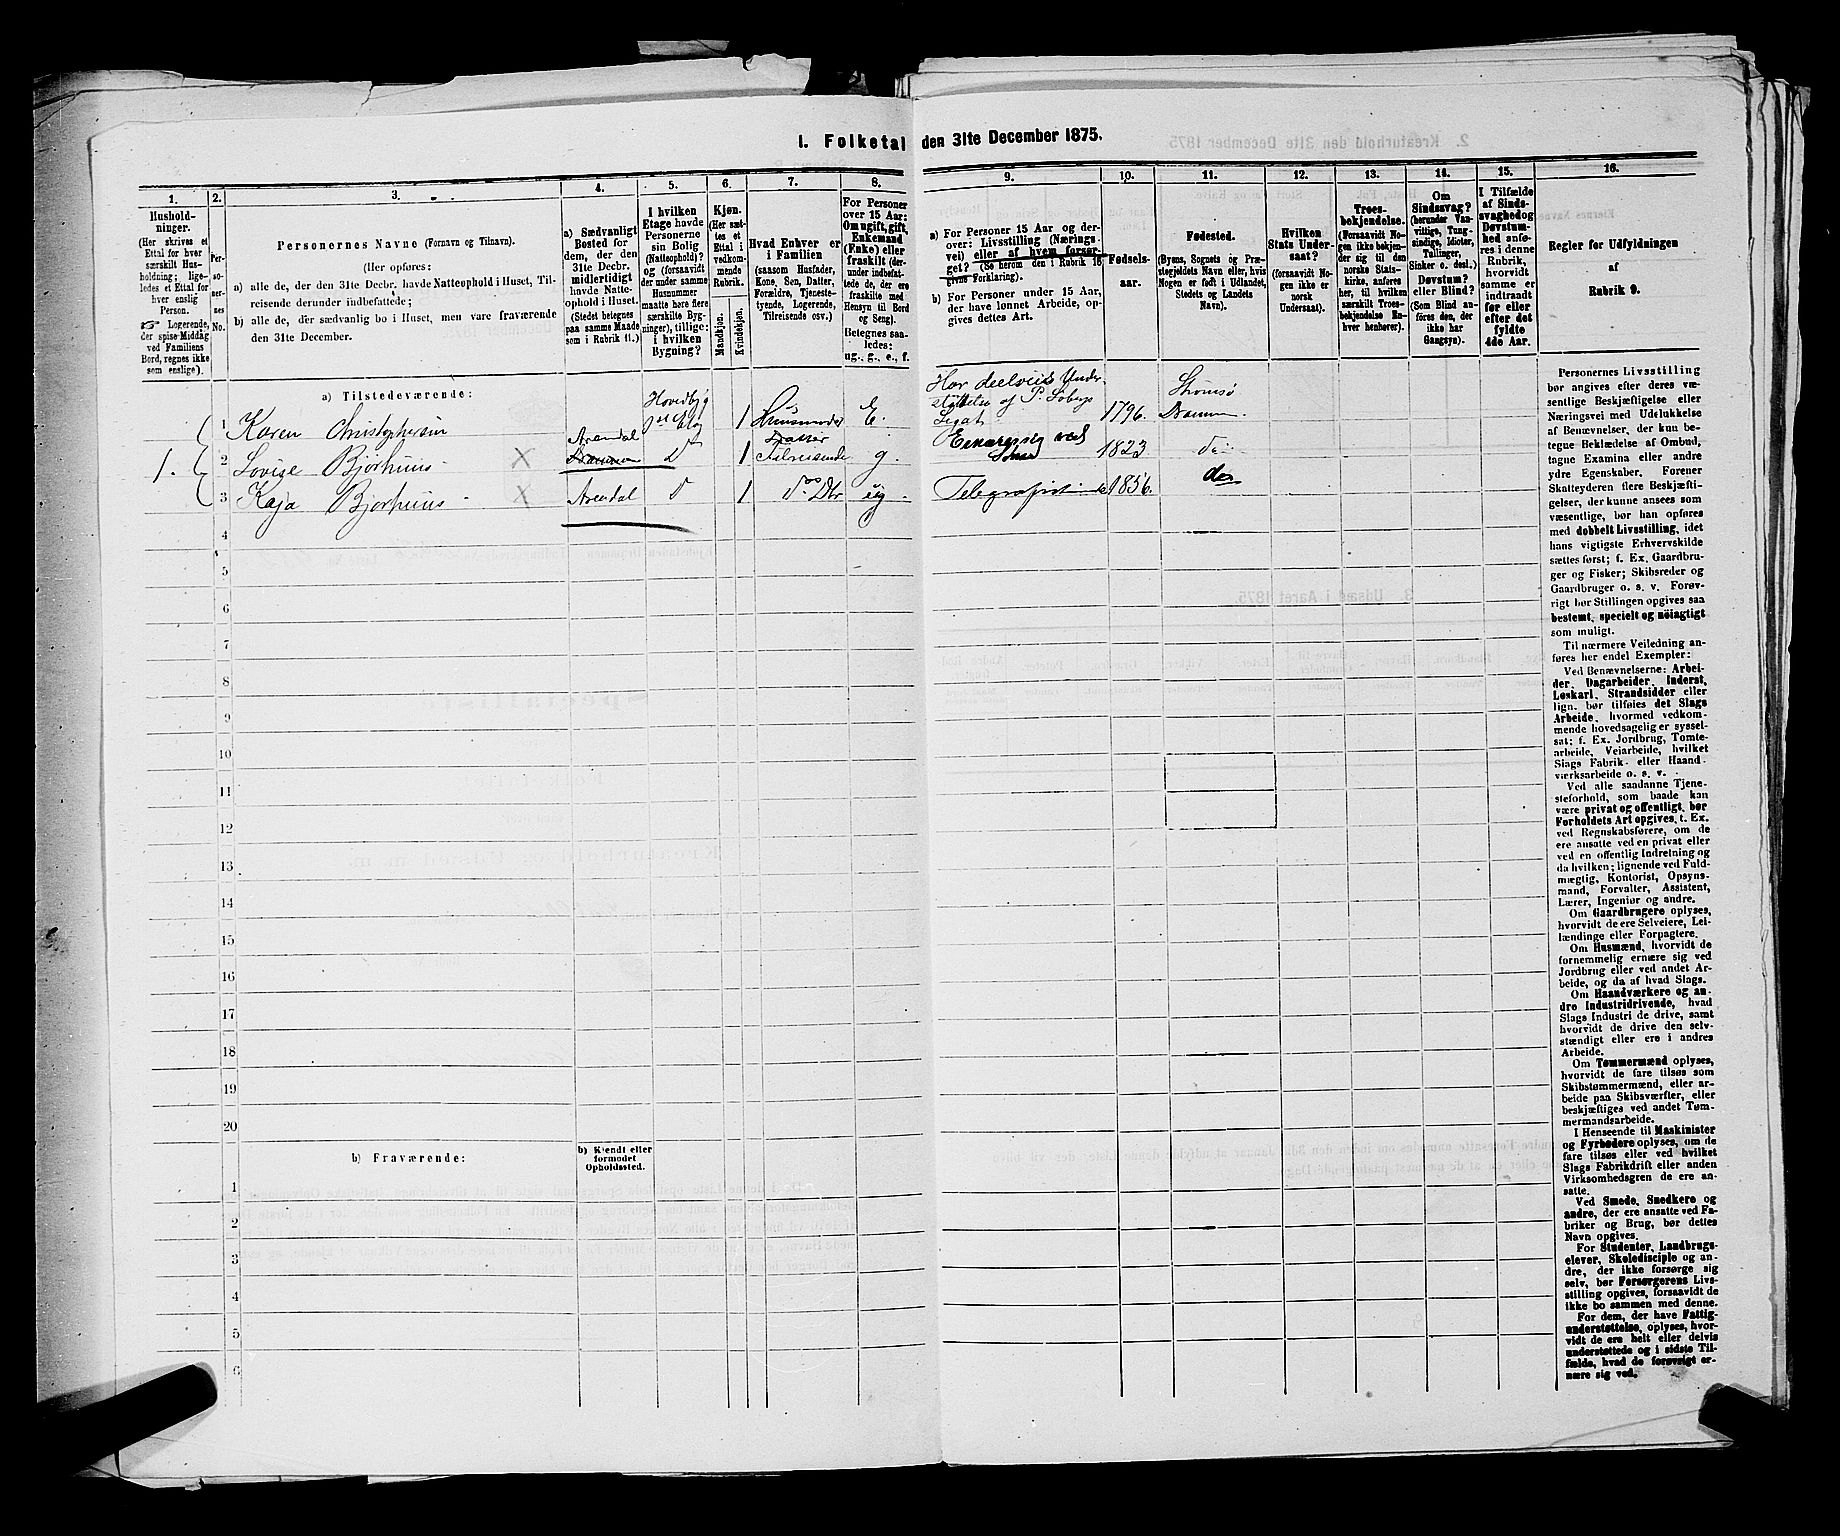 1. Folketal den 31te December 1875.
1.
Hushold-
ninger.
(Her skrives et
Ettal for hver
særskilt Hus-
holdning; lige-
ledes et Ettal for
hver enslig
Person.
☞ Logerende,
der spise Middag
ved Familiens
Bord, regnes ikke
som enslige).
2.
Per-
so-
ner-
nes
No.
3.
Personernes Navne (Fornavn og Tilnavn).
(Her opføres:
a) alle de, der den 31te Decbr. havde Natteophold i Huset, Til-
reisende derunder indbefattede;
b) alle de, der sædvanlig bo i Huset, men vare fraværende
den 31te December.
4.
a) Sædvanligt
Bosted for
dem, der den
31te Decbr.
midlertidigt
havde Natte-
ophold i Huset.
(Stedet betegnes
paa samme Maade
som i Rubrik 11.)
5.
I hvilken
Etage havde
Personerne
sin Bolig
(Natteophold)?
og (forsaavidt
der under samme
Husnummer
maatte høre flere
særskilte Byg-
ninger), tillige:
i hvilken
Bygning?
6.
Kjøn.
(Her sæt-
tes et
Ettal i
vedkom-
mende
Rubrik.
Mandkjøn.
Kvindekjøn.
7.
Hvad Enhver er
i Familien
(saasom Husfader,
Kone, Søn, Datter,
Forældre, Tjeneste-
tyende, Logerende,
Tilreisende osv.)
8.
For Personer
over 15 Aar:
Om ugift, gift,
Enkemand
(Enke) eller
fraskilt (der-
under indbefat-
tede de, der ere
fraskilte med
Hensyn til Bord
og Seng).
Betegnes saa-
ledes:
ug., g., e., f.
9.
a) For Personer 15 Aar og der-
over: Livsstilling (Nærings-
vei) eller af hvem forsør-
get? (Se herom den i Rubrik 16
givne Forklaring).
b) For Personer under 15 Aar,
der have lønnet Arbeide, op-
gives dettes Art.
10.
Fødsels-
aar.
11.
Fødested.
(Byens, Sognets og Præ-
stegjeldets Navn eller, hvis
Nogen er født i Udlandet,
Stedets og Landets
Navn).
12.
Hvilken
Stats Under-
saat?
(forsaavidt No-
gen ikke er
norsk
Undersaat).
13.
Troes-
bekjendelse.
(Forsaavidt No-
gen ikke bekjen-
der sig til den
norske Stats-
kirke, anføres
her, til hvilken
særskilt Troes-
bekjendelse En-
hver henhører).
14.
Om
Sindssvag?
(herunder Van-
vittige, Tung-
sindige, Idioter,
Tullinger,
Sinker o. desl.)
Døvstum?
eller Blind?
(Som Blind an-
føres den, der
ikke har
Gangsyn).
15.
I Tilfælde
af Sinds-
svaghed og
Døvstum-
hed anfø-
res i denne
Rubrik,
hvorvidt
samme er
indtraadt
før eller
efter det
fyldte
4de Aar.
16.
Regler for Udfyldningen
af
Rubrik 9.
a) Tilstedeværende:
1. 1 Karen Christophersen Hovedbyg 1st Etag 1 Huusmoder E. Har deelviis Under-
støttelse af P. Sobys
Legat 1796. Strømsø
Dramm
2 Lovise Bjørhuus X Arendal Drammen d 1 Datter
Tilreisende g. ved 1823 do
3 Kaja Bjørhuus X Arendal d 1 do. Dtr ug. Telegrafistinde 1856. do
4
5
6
7
8
9
10
11
12
13
14
15
16
17
18
19
20
b) Fraværende:
b) Kjendt eller
formodet
Opholdssted.
1
2
3
4
5
6
Personernes Livsstilling
bør angives efter deres væ-
sentlige Beskjæftigelse eller
Næringsvei med Udelukkelse
af Benævnelser, der kun be-
tegne Beklædelse af Ombud,
tagne Examina eller andre
ydre Egenskaber. Forener
Skatteyderen flere Beskjæfti-
gelser, der kunne ansees som
væsentlige, bør han opføres
med dobbelt Livsstilling, idet
hans vigtigste Erhvervskilde
sættes først; f. Ex. Gaardbru-
ger og Fisker; Skibsreder og
Gaardbruger o. s. v. Forøv-
rigt bør Stillingen opgives saa
bestemt, specielt og nøiagtigt
som muligt.
Til nærmere Veiledning an-
føres her endel Exempler:
Ved Benævnelserne: Arbei-
der, Dagarbeider, Inderst,
Løskarl, Strandsidder eller
lign. bør tilføies det Slags
Arbeide, hvormed vedkom-
mende hovedsagelig er syssel-
sat; f. Ex. Jordbrug, Tomte-
arbeide, Veiarbeide, hvilket
Slags Fabrik- eller Haand-
værksarbeide o. s. v.
Ved alle saadanne Tjene-
steforhold, som baade kan
være privat og offentligt, bør
Forholdets Art opgives, t. Ex.
ved Regnskabsførere, om de
ere ansatte ved en privat eller
ved en offentlig Indretning og
da hvilken; lignende ved Fuld-
mægtig, Kontorist, Opsyns-
mand, Forvalter, Assistent,
Lærer, Ingeniør og andre.
Om Gaardbrugere oplyses,
hvorvidt de ere Selveiere, Lei-
lændinge eller Forpagtere.
Om Husmænd, hvorvidt de
fornemmelig ernære sig ved
Jordbrug eller ved andet Ar-
beide, og da af hvad Slags.
Om Haandværkere og an-
dre Industridrivende, hvad
Slags Industri de drive, samt
hvorvidt de drive den selv-
stændigt eller ere i andres
Arbeide.
Om Tømmermænd oplyses,
hvorvidt de fare tilsøs som
Skibstømmermænd, eller ar-
beide paa Skibsværfter, eller
beskjæftiges ved andet Tøm-
mermandsarbeide.
I Henseende til Maskinister
og Fyrbødere oplyses, om de
fare tilsøs eller ved hvilket
Slags Fabrikdrift eller anden
Virksomhedsgren de ere an-
satte.
Ved Smede, Snedkere og
andre, der ere ansatte ved Fa-
briker og Brug, bør dettes
Navn opgives.
For Studenter, Landbrugs-
elever, Skoledisciple og an-
dre, der ikke forsørge sig
selv, bør Forsørgerens Livs-
stilling opgives, forsaavidt de
ikke bo sammen med denne.
For dem, der have Fattig-
understøttelse, oplyses, hvor-
vidt de ere helt eller delvis
understøttede og i sidste Til-
fælde, hvad de forøvrigt er-
nære sig ved.